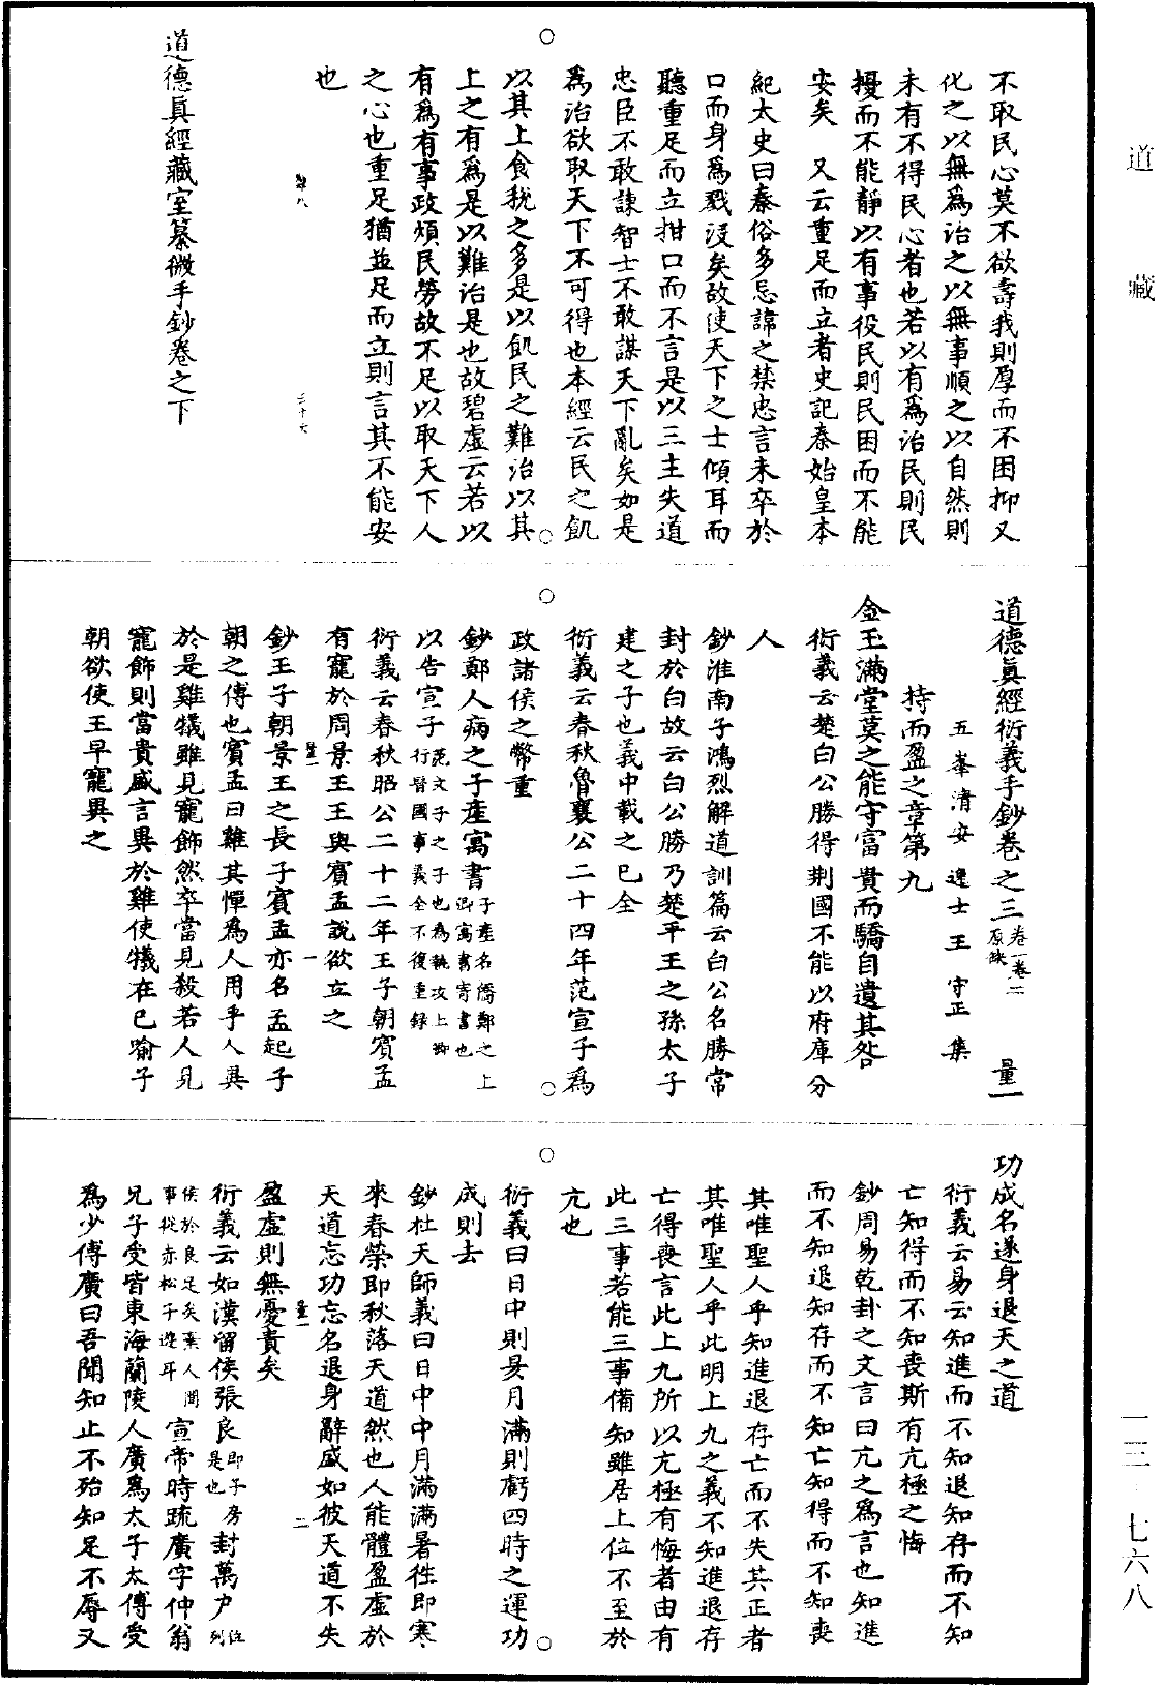 道藏
一三·七六八
不取民心莫不欲壽我則厚而不困抑又
化之以無為治之以無事順之以自然則
未有不得民心者也若以有為治民則民
擾而不能靜以有事役民則民困而不能
安矣　又云重足而立者史記秦始皇本
紀太史曰秦俗多忌諱之禁忠言未卒於
口而身為戮沒矣故使天下之士傾耳而
聽重足而立拑口而不言是以三主失道
忠臣不敢諫智士不敢謀天下亂矣如是
為治欲取天下不可得也本經云民之飢
以其上食稅之多是以飢民之難治以其
上之有為是以難治是也故碧虛云若以
有為有事政煩民勞故不足以取天下人
之心也重足猶並足而立則言其不能安
也
道德真經藏室纂微手鈔卷之下
道德真經衍義手鈔卷之三卷一卷二原缺　量一
五峯清安逸士王守正集
持而盈之章第九
金玉滿堂莫之能守富貴而驕自遺其咎
衍義云楚白公勝得荆國不能以府庫分
人
鈔淮南子鴻烈解道訓篇云白公名勝常
封於白故云白公勝乃楚平王之孫太子
建之子也義中載之已全
衍義云春秋魯襄公二十四年范宣子為
政諸侯之幣重
鈔鄭人病之子產寓書子產名僑鄭之上卿寓書寄書也
以告宣子范文子之子也為執政上卿行晉國事義全不復重録
衍義云春秋昭公二十二年王子朝賓孟
有寵於周景王王與賓孟說欲立之
量一　一
鈔王子朝景王之長子賓孟亦名孟起子
朝之傅也賓孟曰雞其憚為人用乎人異
於是雞犧雖見寵飾然卒當見殺若人見
寵飾則當貴盛言異於雞使犧在己喻子
朝欲使王早寵異之
功成名遂身退天之道
衍義云易云知進而不知退知存而不知
亡知得而不知喪斯有亢極之悔
鈔周易乾卦之文言曰亢之為言也知進
而不知退知存而不知亡知得而不知喪
其唯聖人乎知進退存亡而不失其正者
其唯聖人乎此明上九之義不知進退存
亡得喪言此上九所以亢極有悔者由有
此三事若能三事備知雖居上位不至於
亢也
衍義曰日中則昃月滿則虧四時之運功
成則去
鈔杜天師義曰日中中月滿滿暑徃即寒
來春榮即秋落天道然也人能體盈虛於
天道忘功忘名退身辭盛如彼天道不失
盈虛則無憂責矣
量一　二
衍義云如漢留侯張良即子房是也封萬户位列
侯於良足矣棄人間事從赤松子遊耳宣帝時疏廣字仲翁
兄子受皆東海蘭陵人廣為太子太傅受
為少傅廣曰吾聞知止不殆知足不辱又